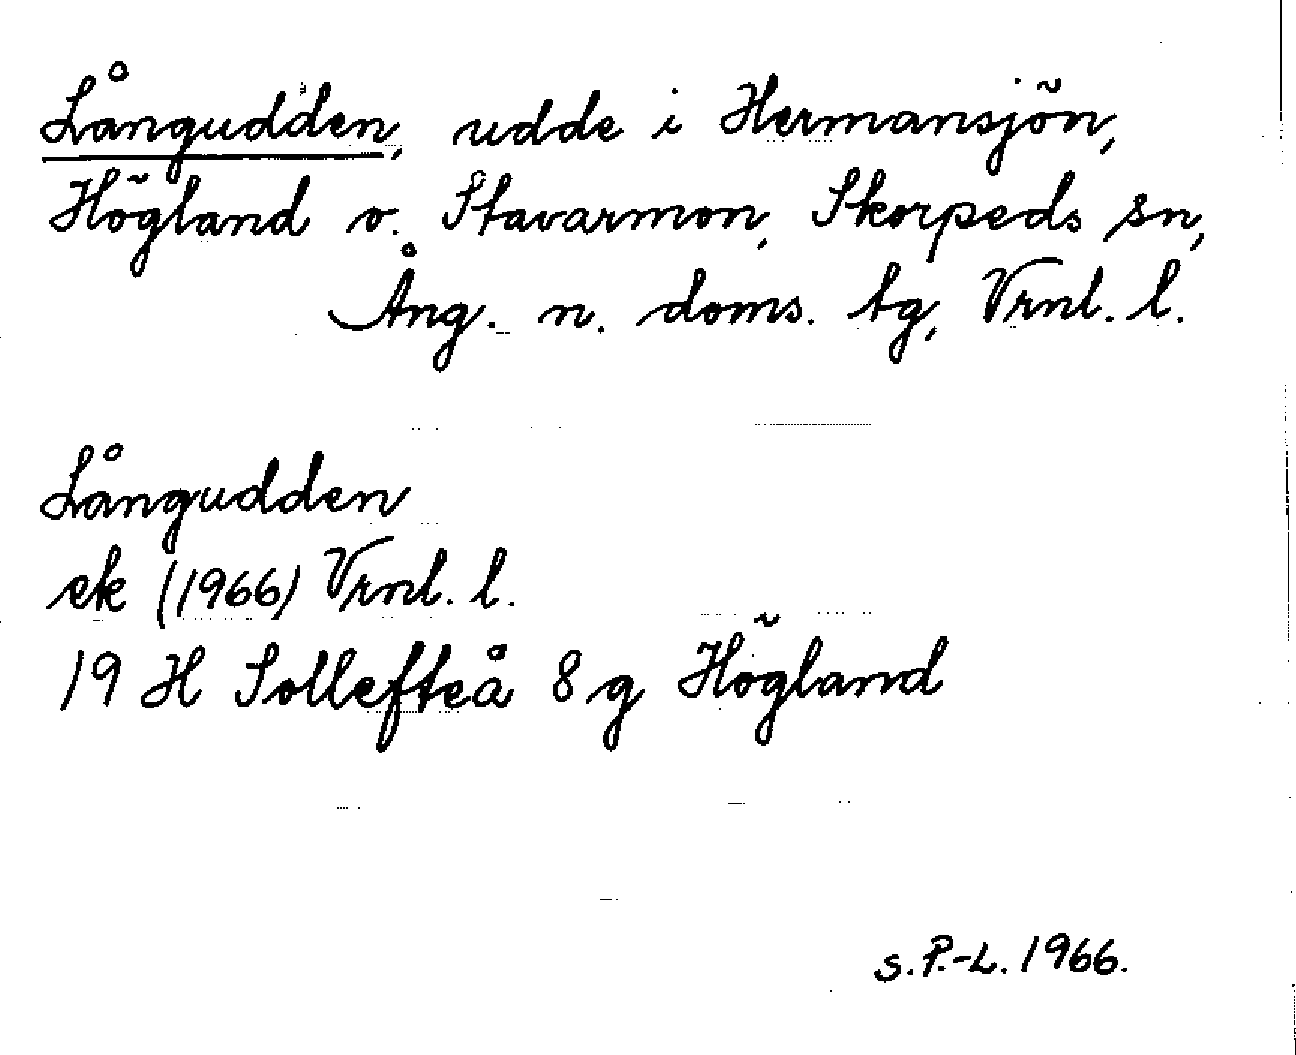 Långudden, udde i Hermansjön,
Högland o. Stavarmon, Skorpeds sn,
Ång. n. doms. tg, Vrnl. l.
Långudden
ek (1966) Vrnl. l.
19 H Sollefteå 8 g Högland
s.P.-L. 1966.